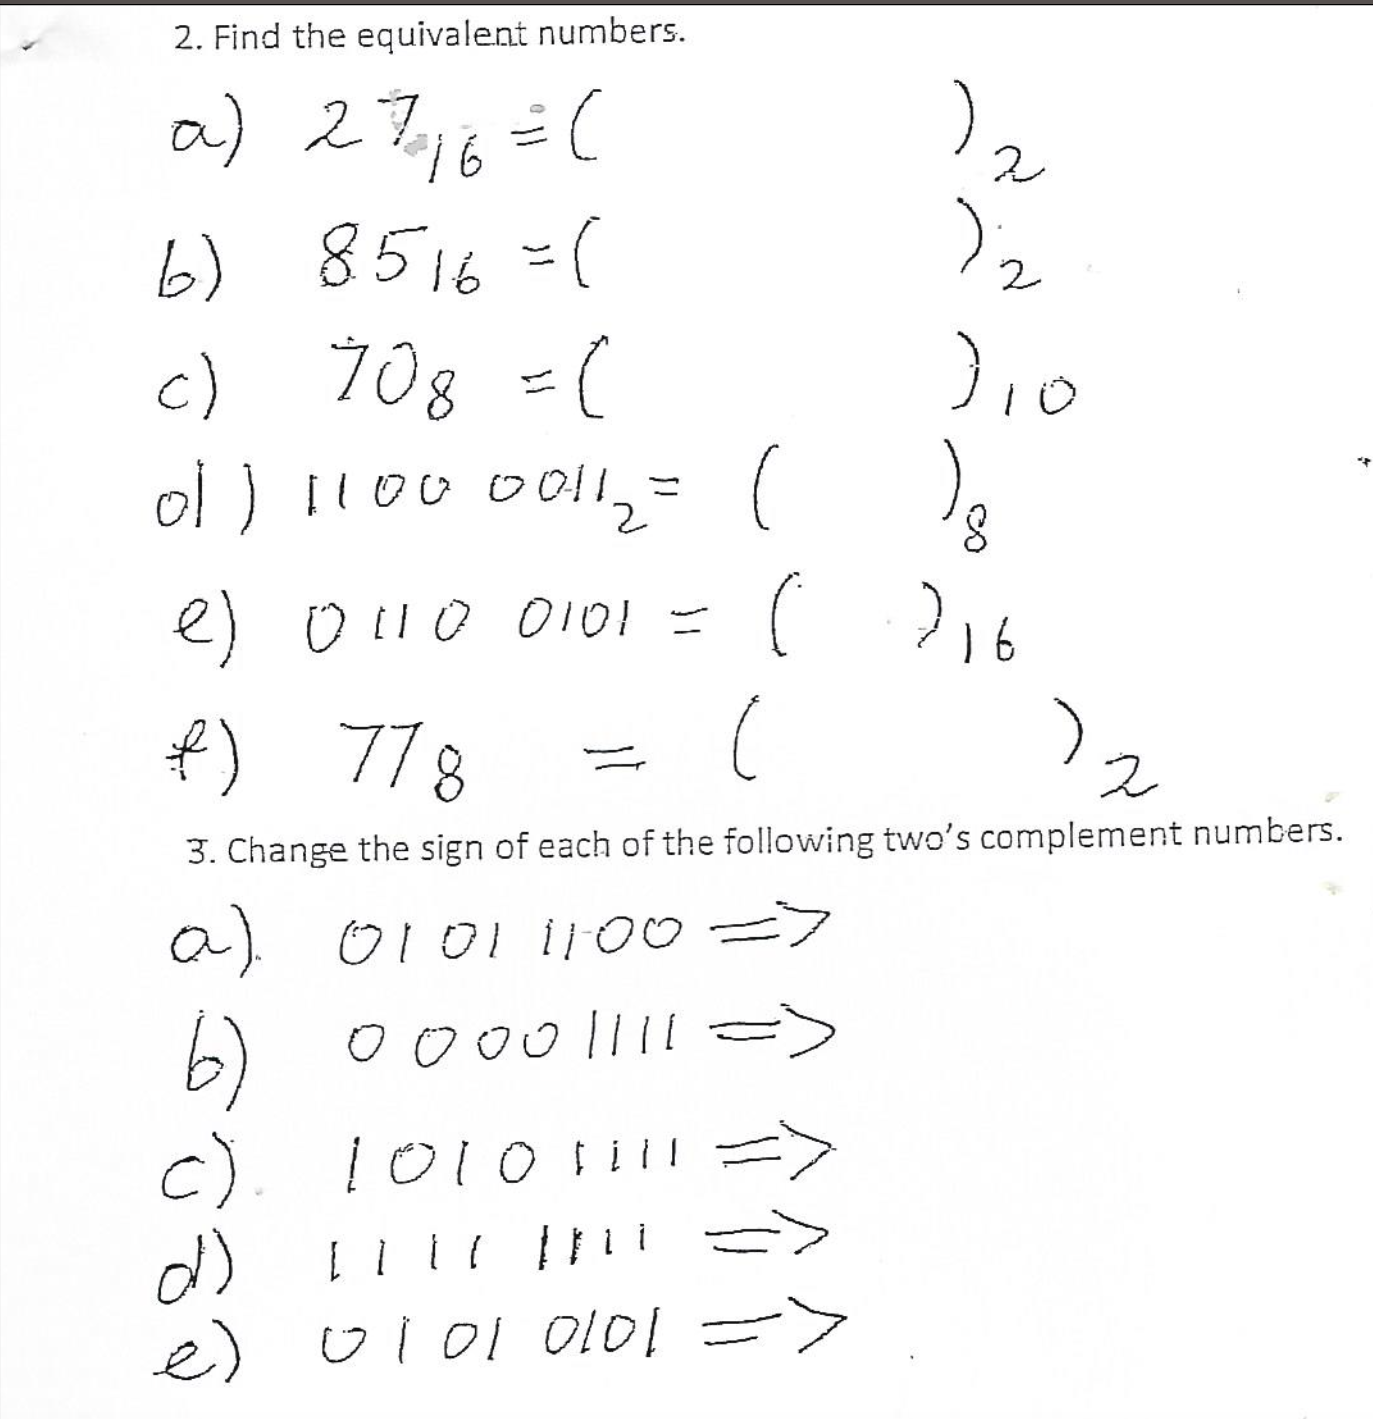 2. Find the equivalent numbers.
a) 27₁₆ = ( )₂
b) 85₁₆ = ( )₂
c) 70₈ = ( )₁₀
d) 1100 0011₂ = ( )₈
e) 0110 0101 = ( )₁₆
f) 77₈ = ( )₂
3. Change the sign of each of the following two's complement numbers.
a). 0101 1100 =>
b) 0000 1111 =>
c). 1010 1111 =>
d) 1111 1111 =>
e) 0101 0101 =>